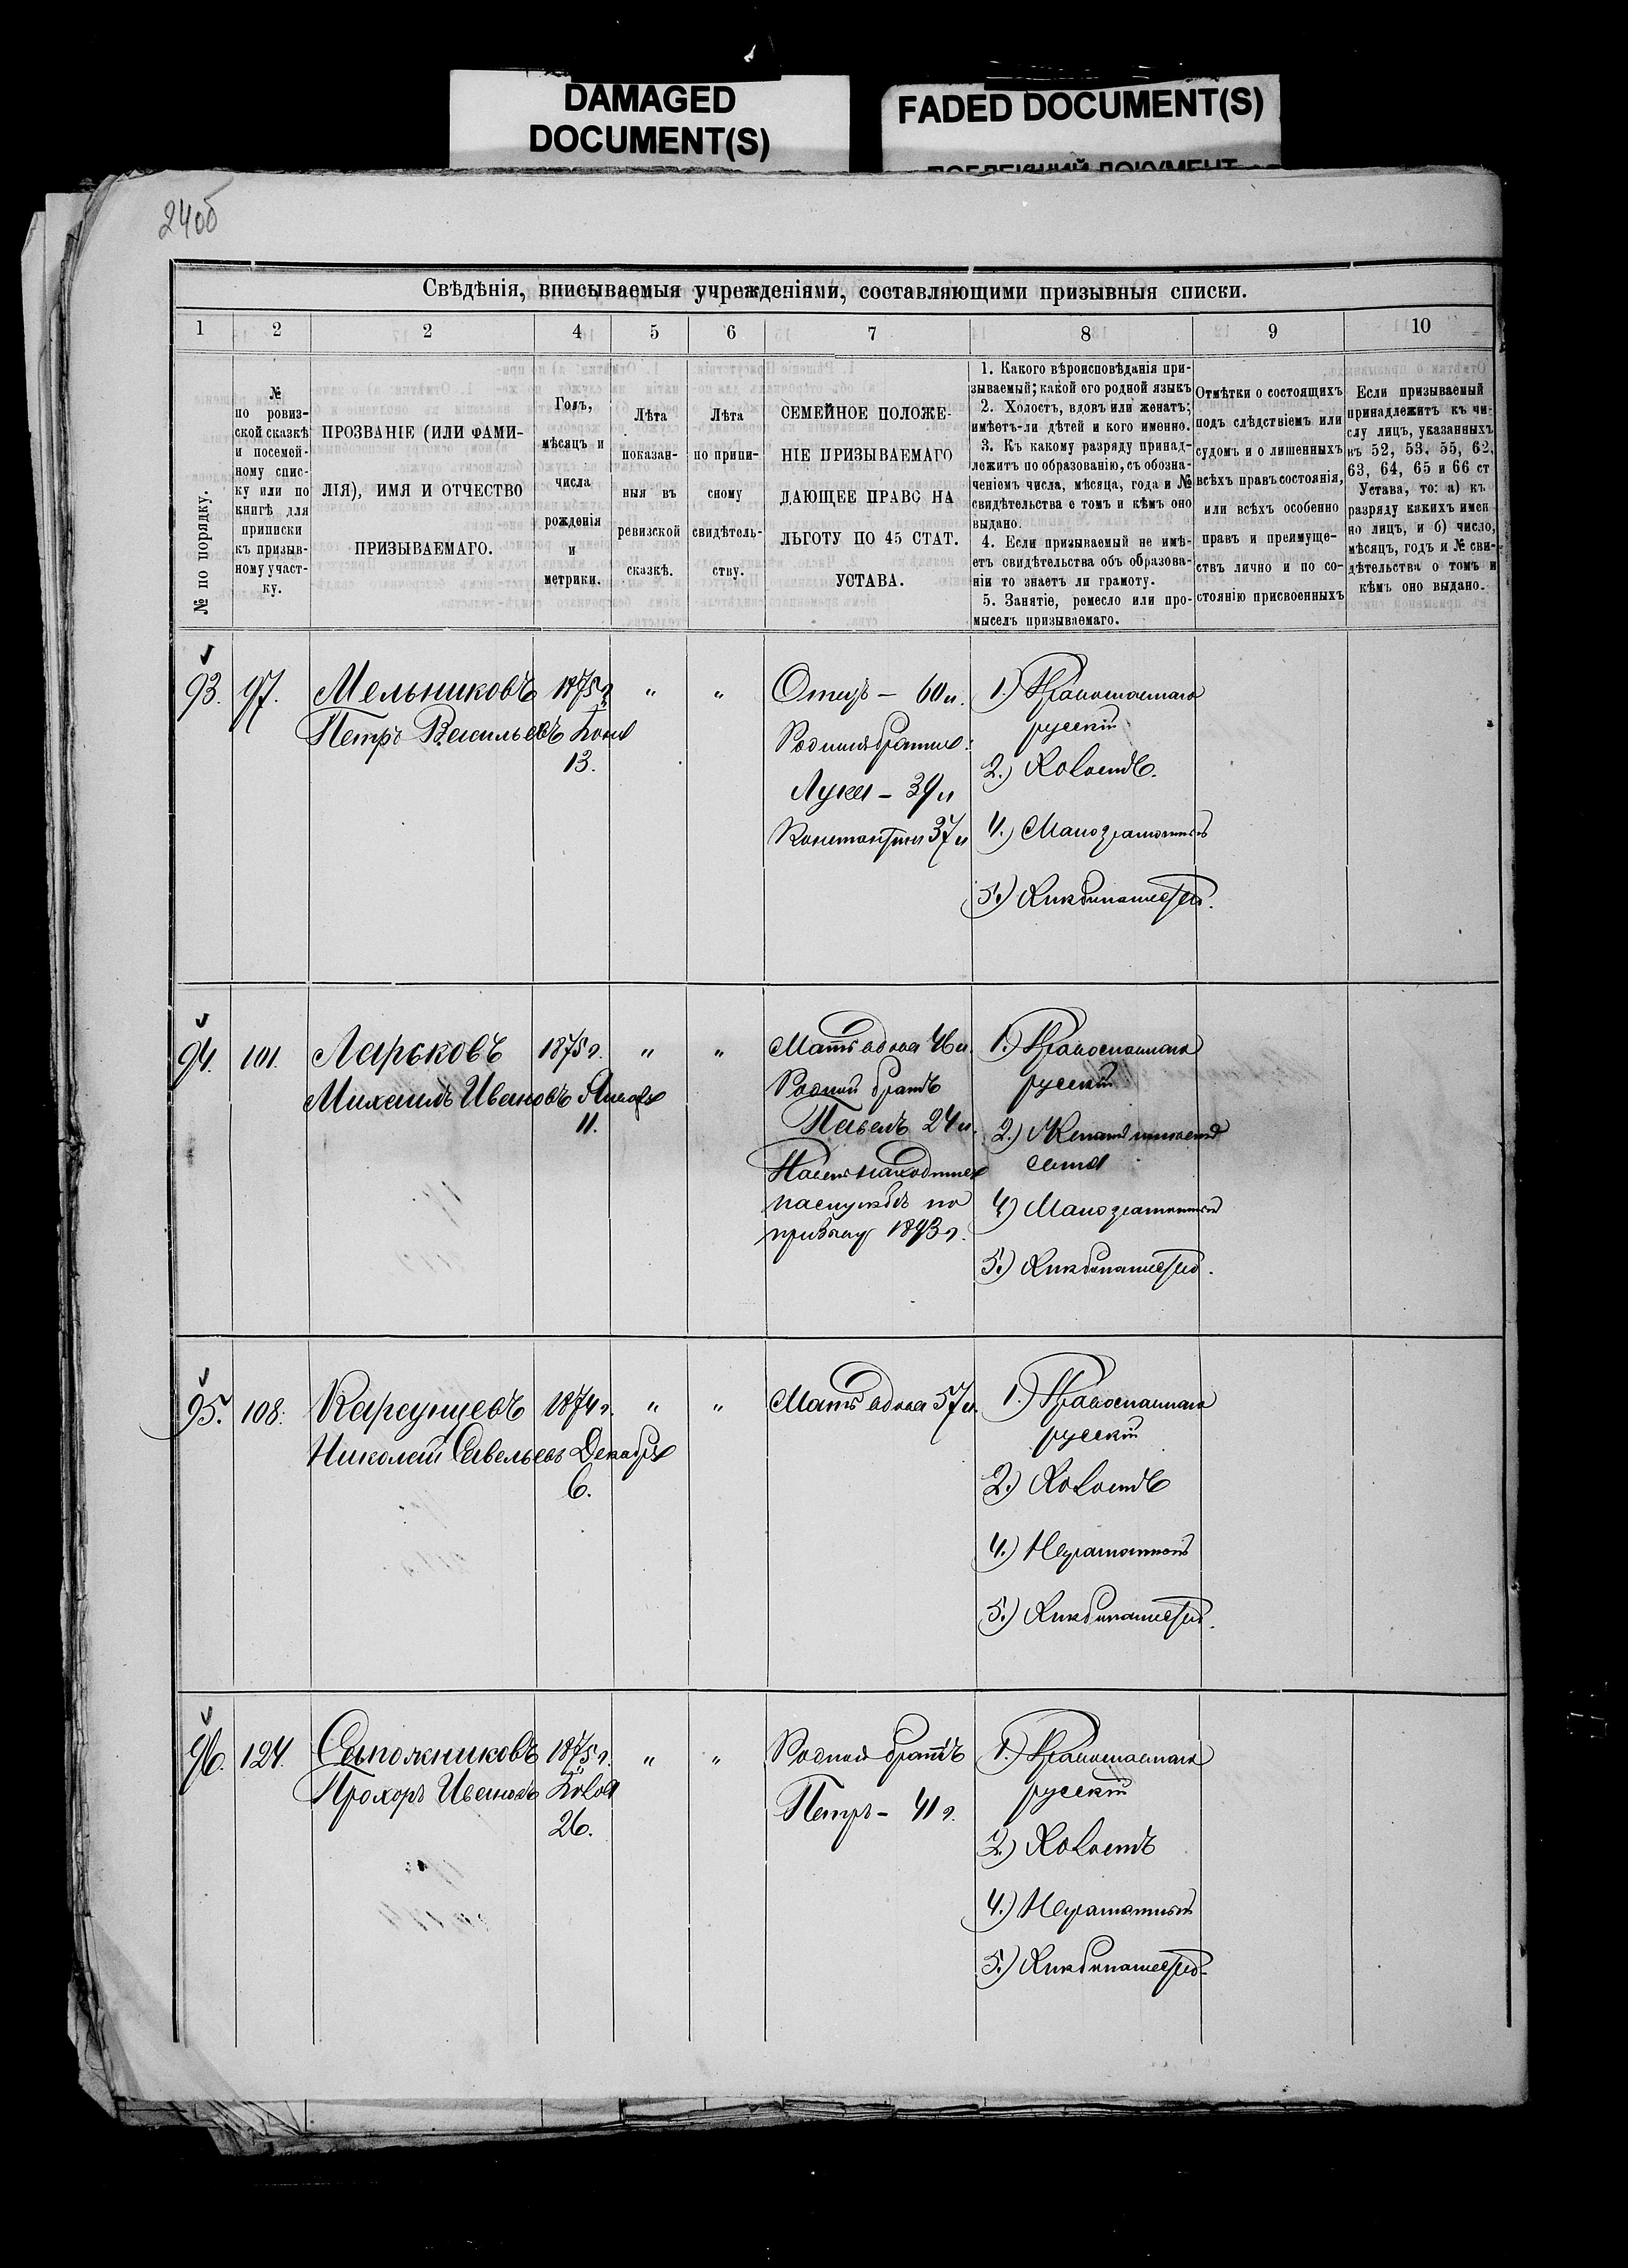 DAMAGED
DOCUMENT(S)
FADED DOCUMENT(S)
240б
Свѣдѣнія, вписываемыя учрежденіями, составляющими призывныя списки.
1 2 2 4 5 6 7 8 9 10
№ по порядку.
№
по ровиз-
ской сказкѣ
и посемей-
ному спис-
ку или по
книгѣ для
приписки
къ призыв-
ному участ-
ку.
ПРОЗВАНІЕ (ИЛИ ФАМИ-
ЛІЯ), ИМЯ И ОТЧЕСТВО
ПРИЗЫВАЕМАГО.
Годъ,
мѣсяцъ и
числа
рожденія
и
метрики.
Лѣта
показан-
ныя въ
ревизской
сказкѣ.
Лѣта
по припи-
сному
свидѣтель-
ству.
СЕМЕЙНОЕ ПОЛОЖЕ-
НІЕ ПРИЗЫВАЕМАГО
ДАЮЩЕЕ ПРАВО НА
ЛЬГОТУ ПО 45 СТАТ.
УСТАВА.
1. Какого вѣроисповѣданія при-
зываемый; какой его родной языкъ
2. Холостъ, вдовъ или женатъ;
имѣетъ-ли дѣтей и кого именно.
3. Къ какому разряду принад-
лежитъ по образованію, съ обозна-
ченіемъ числа, мѣсяца, года и №
свидѣтельства о томъ и кѣмъ оно
выдано.
4. Если призываемый не имѣ-
етъ свидѣтельства объ образова-
ніи то знаетъ ли грамоту.
5. Занятіе, ремесло или про-
мыселъ призываемаго.
Отмѣтки о состоящихъ
подъ слѣдствіемъ или
судомъ и о лишенныхъ
всѣхъ правъ состоянія,
или всѣхъ особенно
правъ и преимуще-
ствъ лично и по со-
стоянію присвоенныхъ
Если призываемый
принадлежитъ къ чи-
слу лицъ, указанныхъ
въ 52, 53, 55, 62,
63, 64, 65 и 66 ст
Устава, то: а) къ
разряду какихъ имен
но лицъ, и б) число,
мѣсяцъ, годъ и № сви-
дѣтельства о томъ и
кѣмъ оно выдано.
93. 97. Мельниковъ
Петръ Васильевъ
1875г.
Іюня
13.
" "
Отцъ – 60 л.
Родныя братья:
Лука – 39 л
Константинъ 37 л
1.) Православнаго
русскій
2.) Холостъ.
4.) Малограмотный
5.) Хлѣбопашество.
94. 101. Ларьковъ
Михаилъ Ивановъ
1875г.
Января
11.
" "
Мать вдова 46 л.
Родной братъ
Павелъ 24 л.
Павелъ находится
на службѣ по
призыву 1893г.
1.) Православнаго
русскій
2.) Женатъ имѣетъ
сына
4) Малограмотный
5.) Хлѣбопашество.
95. 108. Карсунцевъ
Николай Савельевъ
1874г.
Декабря
6.
" "
Мать вдова 57 л.
1.) Православнаго
русскій
2.) Холостъ
4.) Неграмотный
5.) Хлѣбопашество.
96. 124. Сапожниковъ
Прохоръ Ивановъ
1875г.
Іюля
26.
" "
Родной братъ
Петръ – 41 г.
1.) Православнаго
русскій
2.) Холостъ
4.) Неграмотный
5.) Хлѣбопашество.